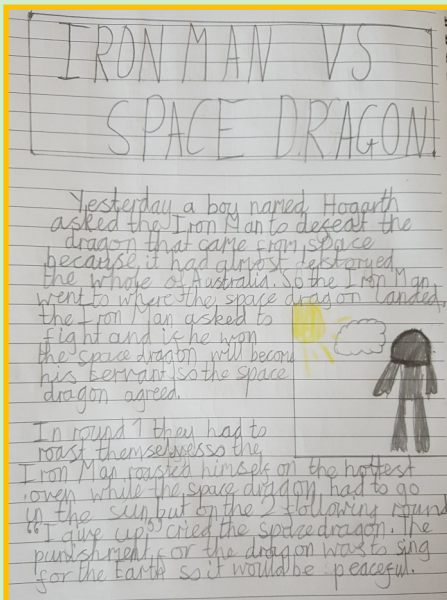 IRON MAN VS
SPACE DRAGON
Yesterday a boy named Hogarth
asked the Iron Man to defeat the
dragon that came from space
because it had almost destoryed
the whole of Australia. So the Iron Man
went to where the space dragon landed,
the Iron Man asked to
fight and if he won
the space dragon will become
his servant so the space
dragon agreed.
In round 1 they had to
roast themselves so the
Iron Man roasted himself on the hottest
oven while the space dragon had to go
in the sun but on the 2 following round
"I give up" cried the space dragon. The
punishment for the dragon was to sing
for the Earth so it would be peaceful.